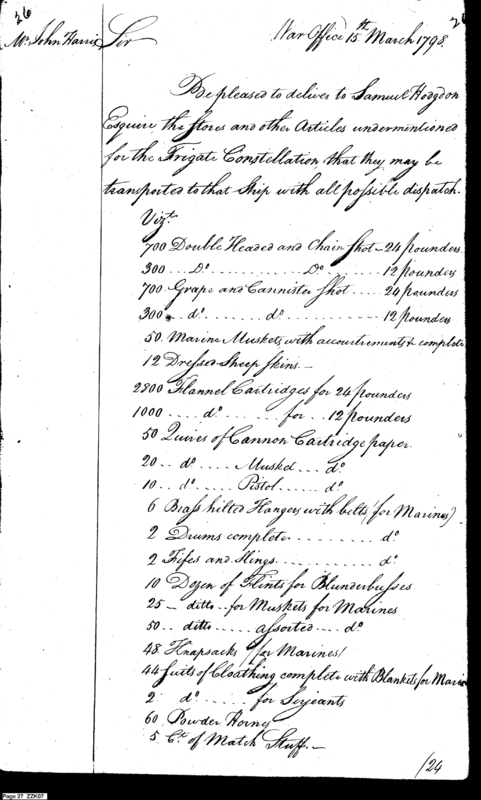 26
26
Mr. John Harris
Sir
War Office 15th March 1798.
Be pleased to deliver to Samuel Hodgdon
Esquire the Stores and other Articles undermentioned
for the Frigate Constellation that they may be
transported to that Ship with all possible dispatch.
Vizt.
700 Double Headed and Chain Shot - 24 pounders
300 ... Do ............ Do ........ 12 pounders
700 Grape and Cannister Shot .... 24 pounders
300 .. do ........ do ............ 12 pounders
50. Marine Muskets with accoutrements complete
12 Dressed Sheep Skins. -
2800 Flannel Cartridges for 24 pounders
1000 .... do ...... for ... 12 pounders
50 Quires of Cannon Cartridge paper
20 .. do ..... Musket ... do
10 .. do ..... Pistol ...... do
6 Brass hilted Hangers with belts (for Marines)
2 Drums complete ............ do
2 Fifes and Slings ............ do
10 Dozen of Flints for Blunderbusses
25 - ditto .. for Muskets for Marines
50 .. ditto ..... assorted .... do
48 Knapsacks (for Marines)
44 Suits of Cloathing complete with Blankets for Marin
2 do ....... for Serjeants
60 Powder Horns
5 Ct. of Match Stuff. -
/24
Page 27 ZZK07